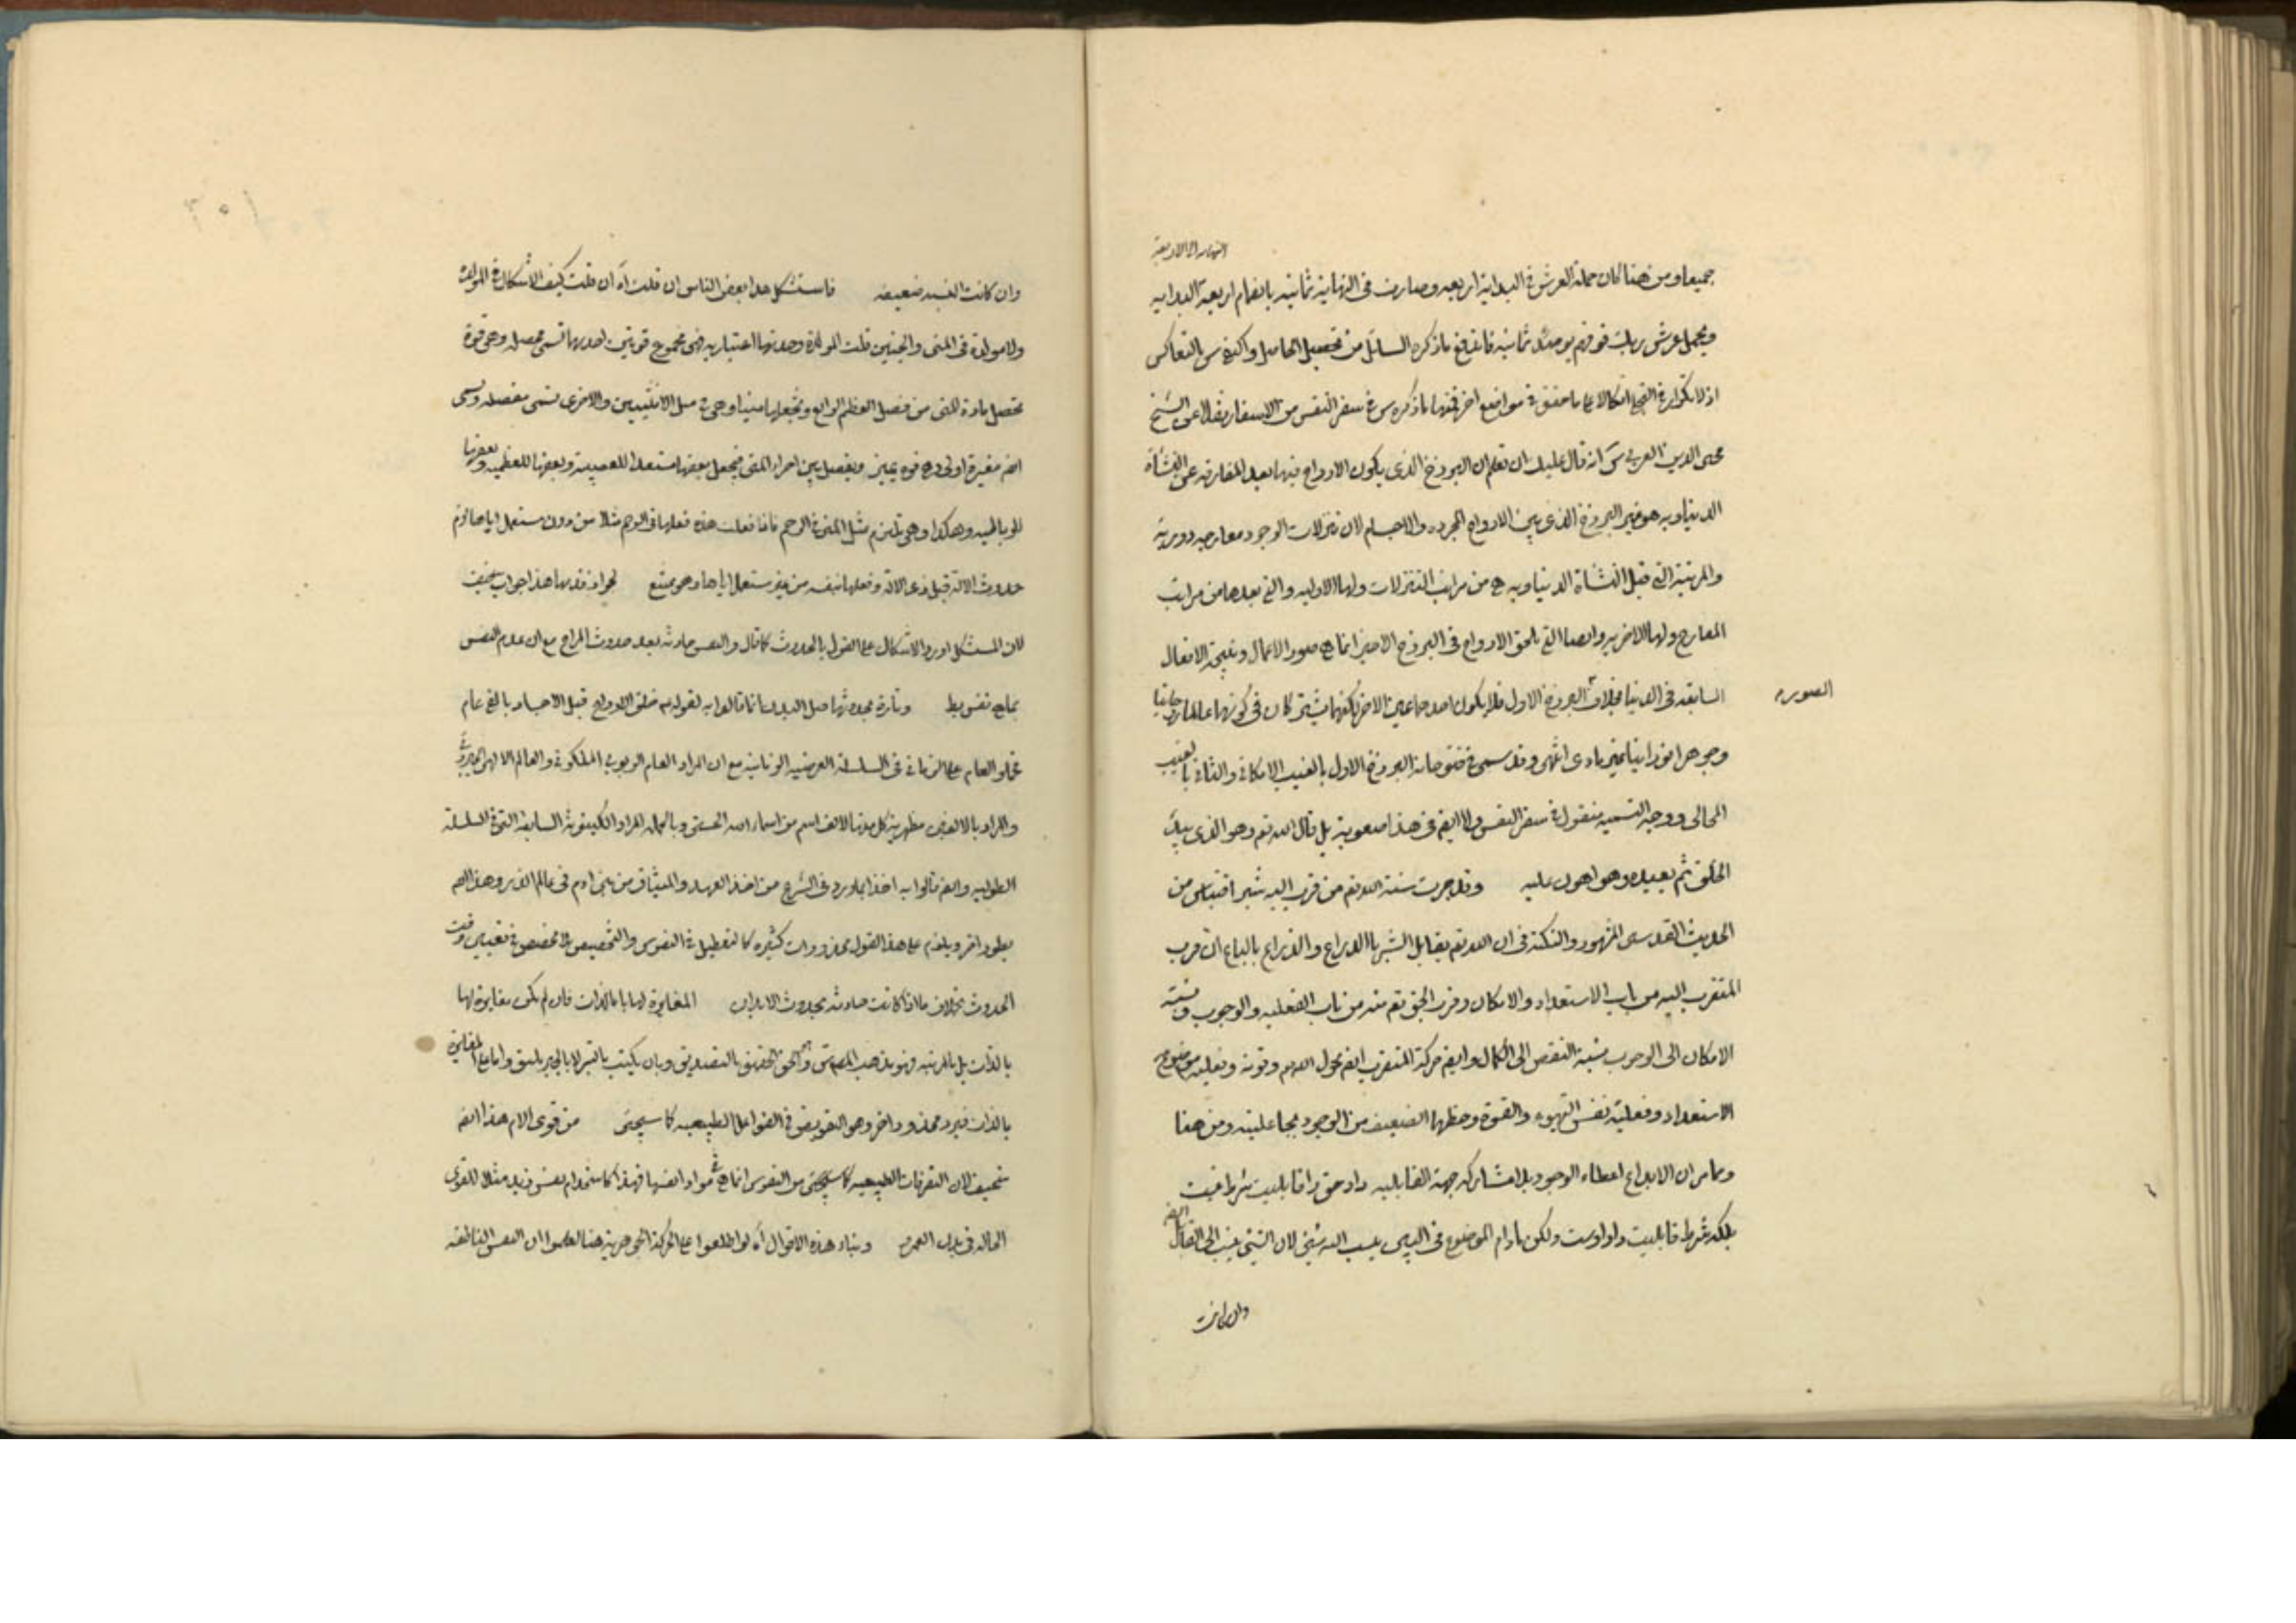 النهاية الى الاربعة
جميعا ومن هنا كان حملة العرش فى البداية اربعه وصارت فى النهاية ثمانيه بانضمام اربعة البدايه
ويحمل عرش ربك فوقهم يومئذ ثمانيه فاندفع ما ذكره السائل من تحصيل الحاصل واكتفى س التعاكس
اذ لا تكرار فى التجلى كما حققه فى مواضع اخر فمنها ما ذكره س فى سفر النفس من الاسفار نقلا عن الشيخ
محى الدين العربى س انه قال عليك ان تعلم ان البرزخ الذى يكون الارواح فيها بعد المفارقه عن النشأة
الدنياويه هو غير البرزخ الذى بين الارواح المجرده والاجسام لان تنزلات الوجود ومعارجه دوريه
والمرتبة التى قبل النشاة الدنياويه هى من مراتب التنزلات ولها الاوليه والتى بعدها من مراتب
المعارج ولها الاخريه وايضا التى تلحق الارواح فى البرزخ الاخير انما هى صور الاعمال ونتيجة الافعال
السابقه فى الدنيا بخلاف البرزخ الاول فلا يكون احدهما عين الاخر لكنهما يشتركان فى كونهما عالما روحانيا
الصوره
وجوهرا نورانيا غير مادى انتهى وقد سمى فى فتوحاته البرزخ الاول بالغيب الامكانى والثانى بالغيب
المحالى ووجه التسميه منقول فى سفر النفس ولا ايضم فى هذا صعوبة بل قال الله تم وهو الذى يبدئ
الخلق ثم يعيده وهو اهون عليه وقد جرت سنة الله تم من قرب اليه شبرا اقتباس من
الحديث القدسى المشهور والنكته فى ان الله تم يقابل الشبر بالذراع والذراع بالباع ان قرب
المتقرب اليه من باب الاستعداد والامكان وقرب الحق تم منه من باب الفعليه والوجوب ونسبة
الامكان الى الوجوب نسبة النقص الى الكمال وايضم حركة المتقرب ايضم بحول الله وقوته وفعليه موضوع
الاستعداد وفعلية نفس التهيؤ والقوة وحظها الضعيف من الوجود بجاعليته ومن هنا
وما مر ان الابداع اعطاء الوجود بلا مشاركه جهة القابليه داد حق را قابليت شرط نيست
بلكه شرط قابليت داد اوست ولكن مادام الموضوع فى البين ينسب اليه شيئ لان الشيئ ينسب الى القابل ايضم
وان كانت
وان كانت النسبه ضعيفه فاستشكل هذا بعض الناس ان قلت آه ان قلت كيف الاشكال فى المولده
ولا مولدة فى المنى والجنين قلت المولدة وحدتها اعتباريه فهى مجموع قوتين احديهما تسمى محصله وهى قوة
تحصل مادة المنى من فضل الهضم الرابع وتجعلها منيا وهى فى محل الانثيين والاخرى تسمى مفصله وتسمى
ايضم مغيرة اولى وهى قوه تميز وتفصل بين اجزاء المنى فيجعل بعضها مستعدا للعصبيه وبعضها للعظميه وبعضها
للرباطيه وهكذا وهى تلزم مثل المنى فى الرحم فاذا فعلت هذه فعلها فى الرحم مثلا من دون مستعمل اياها لزم
حدوث الالة قبل ذى الالة وفعلها بنفسه من غير مستعمل اياها وهو ممتنع لجواز قدمها هذا جواب سخيف
لان المستشكل اورد الاشكال على القول بالحدوث كما قال والنفس حادثه بعد حدوث المزاج مع ان قدم النفس
بما هى نفس بط وتارة بحدوثها قبل البدن انما قالوا به لقوله ع خلق الارواح قبل الاجساد بالفى عام
فحملوا العام على الزمانى فى السلسلة العرضيه الزمانيه مع ان المراد العام الربوبى الملكوتى والعالم الالهى الجبروتى
والمراد بالالفين مظهرية كل منها لالف اسم من اسماء الله الحسنى وبالجمله المراد الكينونة السابقة التى فى السلسلة
الطوليه وايضم قالوا به اخذا بما ورد فى الشرع من اخذ العهد والميثاق من بنى ادم فى عالم الذر وهذا ايضم
بطور اخر ويلزم على هذا القول محذورات كثيره كالتعطيل فى النفوس والتخصيص بلا مخصص فى تعيين وقت
الحدوث بخلاف ما اذا كانت حادثه بحدوث الابدان المغايرة لها بالذات فان لم يكن مغايرة لها
بالذات بل بالمرتبه فهو مذهب المصم س والحق الحقيق بالتصديق وبان يكتب بالتبر لا بالحبر يليق واما مع المغايرة
بالذات فيرد محذور اخر وهو التفويض فى الفواعل الطبيعيه كما سيجئ من قوى الام هذا ايضم
سخيف لان التفرقات الطبيعيه كما سيجئ من النفوس انما هى فى مواد انفسها فهذا كما ستخدام نفس زيد مثلا للقوى
الحاله فى بدن العمرو وبناء هذه الاقوال آه لو اطلعوا على الحركة الجوهرية هنا لعلموا ان النفس الناطقه